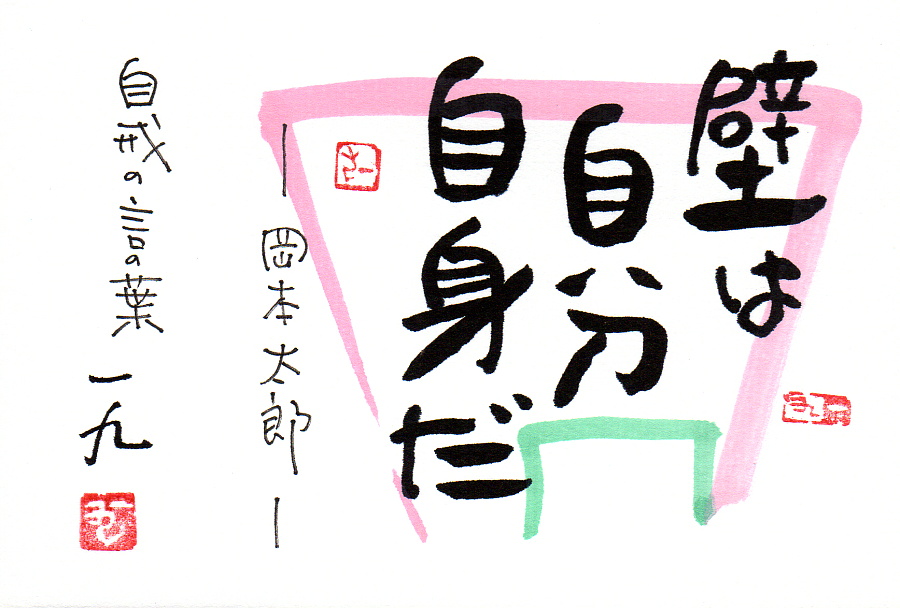 壁は
自分
自身だ
―岡本太郎―
自戒の言の葉 一九